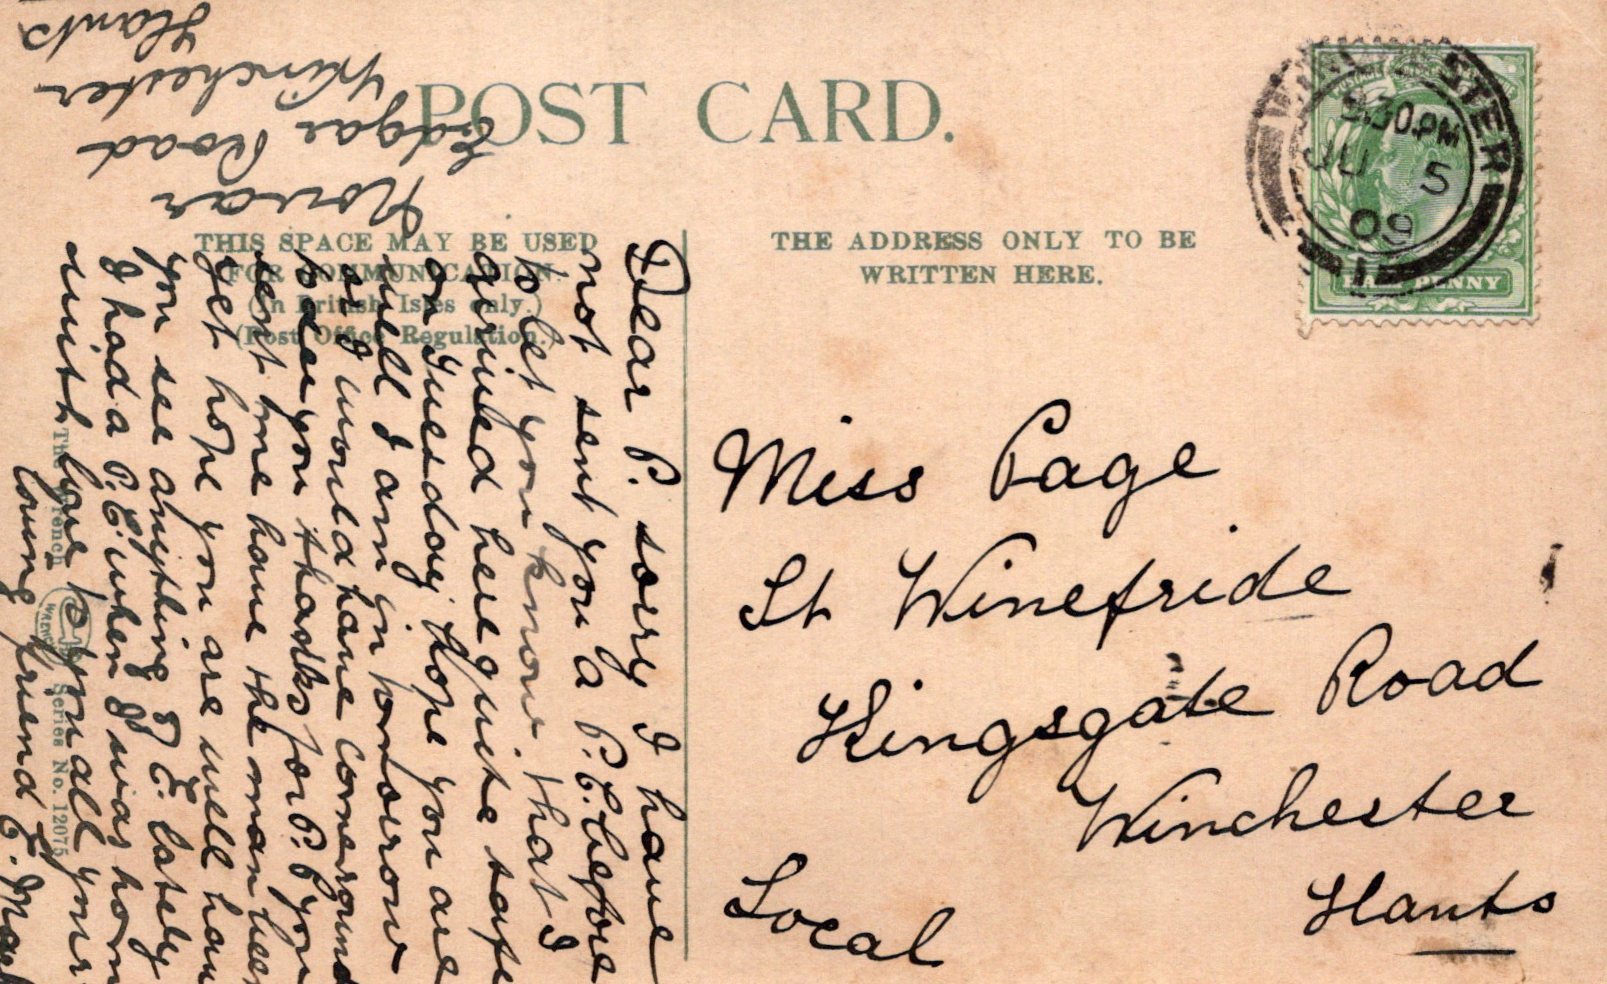 POST CARD.
THIS SPACE MAY BE USED
FOR COMMUNICATION.
(In British Isles only.)
(Post Office Regulation.)
THE ADDRESS ONLY TO BE
WRITTEN HERE.
WINCHESTER
9.30 PM
JU 5
09
HALFPENNY
Miss Page
St Winefride
Kingsgate Road
Winchester
Hants
Local
Edgar Road
Winchester
Hants
Dear P. sorry I have
not sent you a P.C. before
to let you know that I
arrived here quite safe
on Tuesday, Hope you are
well I am in
as I would have come round
to see you thanks for P.C you
sent me have the man been
yet hope you are well have
you see anything of E. lately
I had a P.C. when I was hom
with love to you all your
loving friend E.
The Wrench Series No. 12075